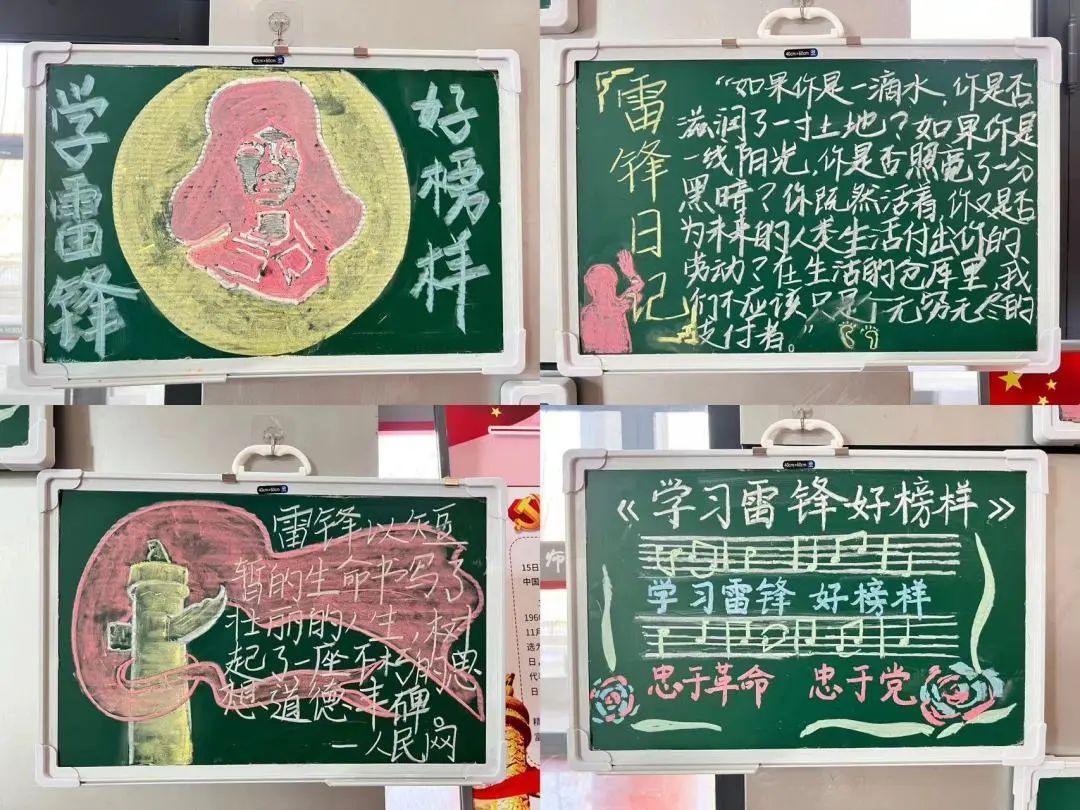 学雷锋
好榜样
雷锋日记
“如果你是一滴水,你是否
滋润了一寸土地?如果你是
一线阳光,你是否照亮了一分
黑暗?你既然活着,你又是否
为未来的人类生活付出你的
劳动?在生活的仓库里,我
们不应该只是个无穷无尽的
支付者。”
雷锋以短
暂的生命书写了
壮丽的人生,树
起了一座不朽的思
想道德丰碑。
—人民网
15日
中国
196
11月
选为
日,
代
日
精
富
《学习雷锋好榜样》
学习雷锋 好榜样
忠于革命 忠于党
师
40cm×60cm
40cm×60cm
40cm×60cm
40cm×60cm